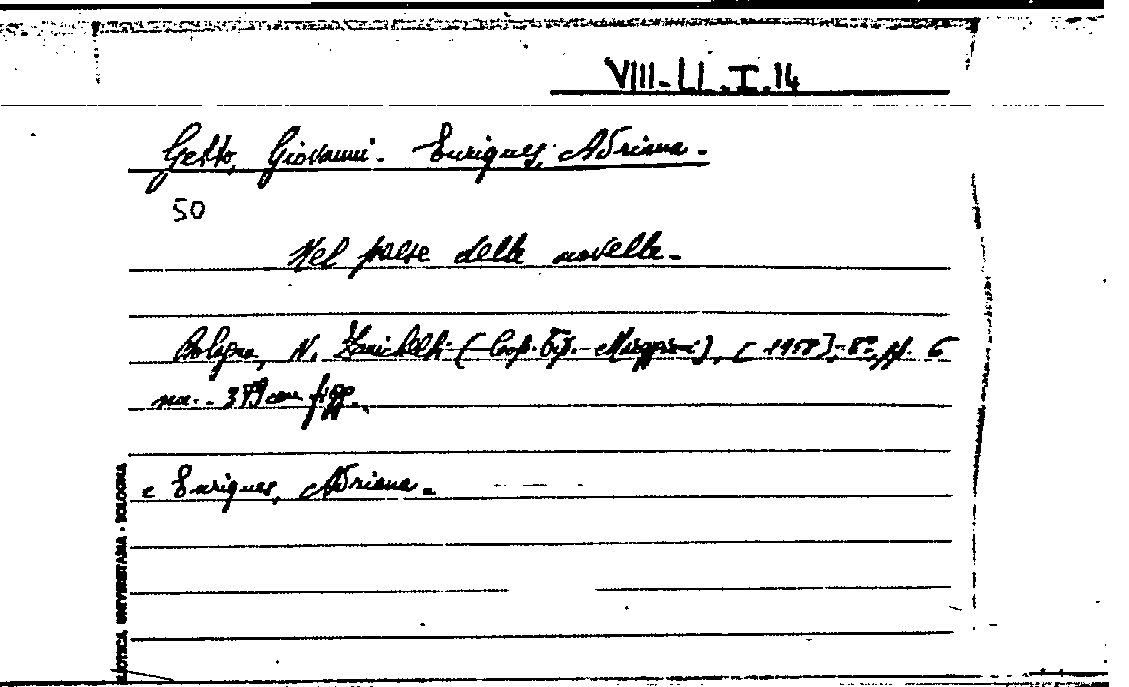 VIII-LL.I.14
Getto, Giovanni. Enriques, Adriana.
50
Nel paese delle novelle.
Bologna, N. Zanichelli (Coop. Tip. Mareggiani), (1958), 8°, pp. 6
nn. - 379 con figg.
e Enriques, Adriana.
BLIOTECA UNIVERSITARIA - BOLOGNA